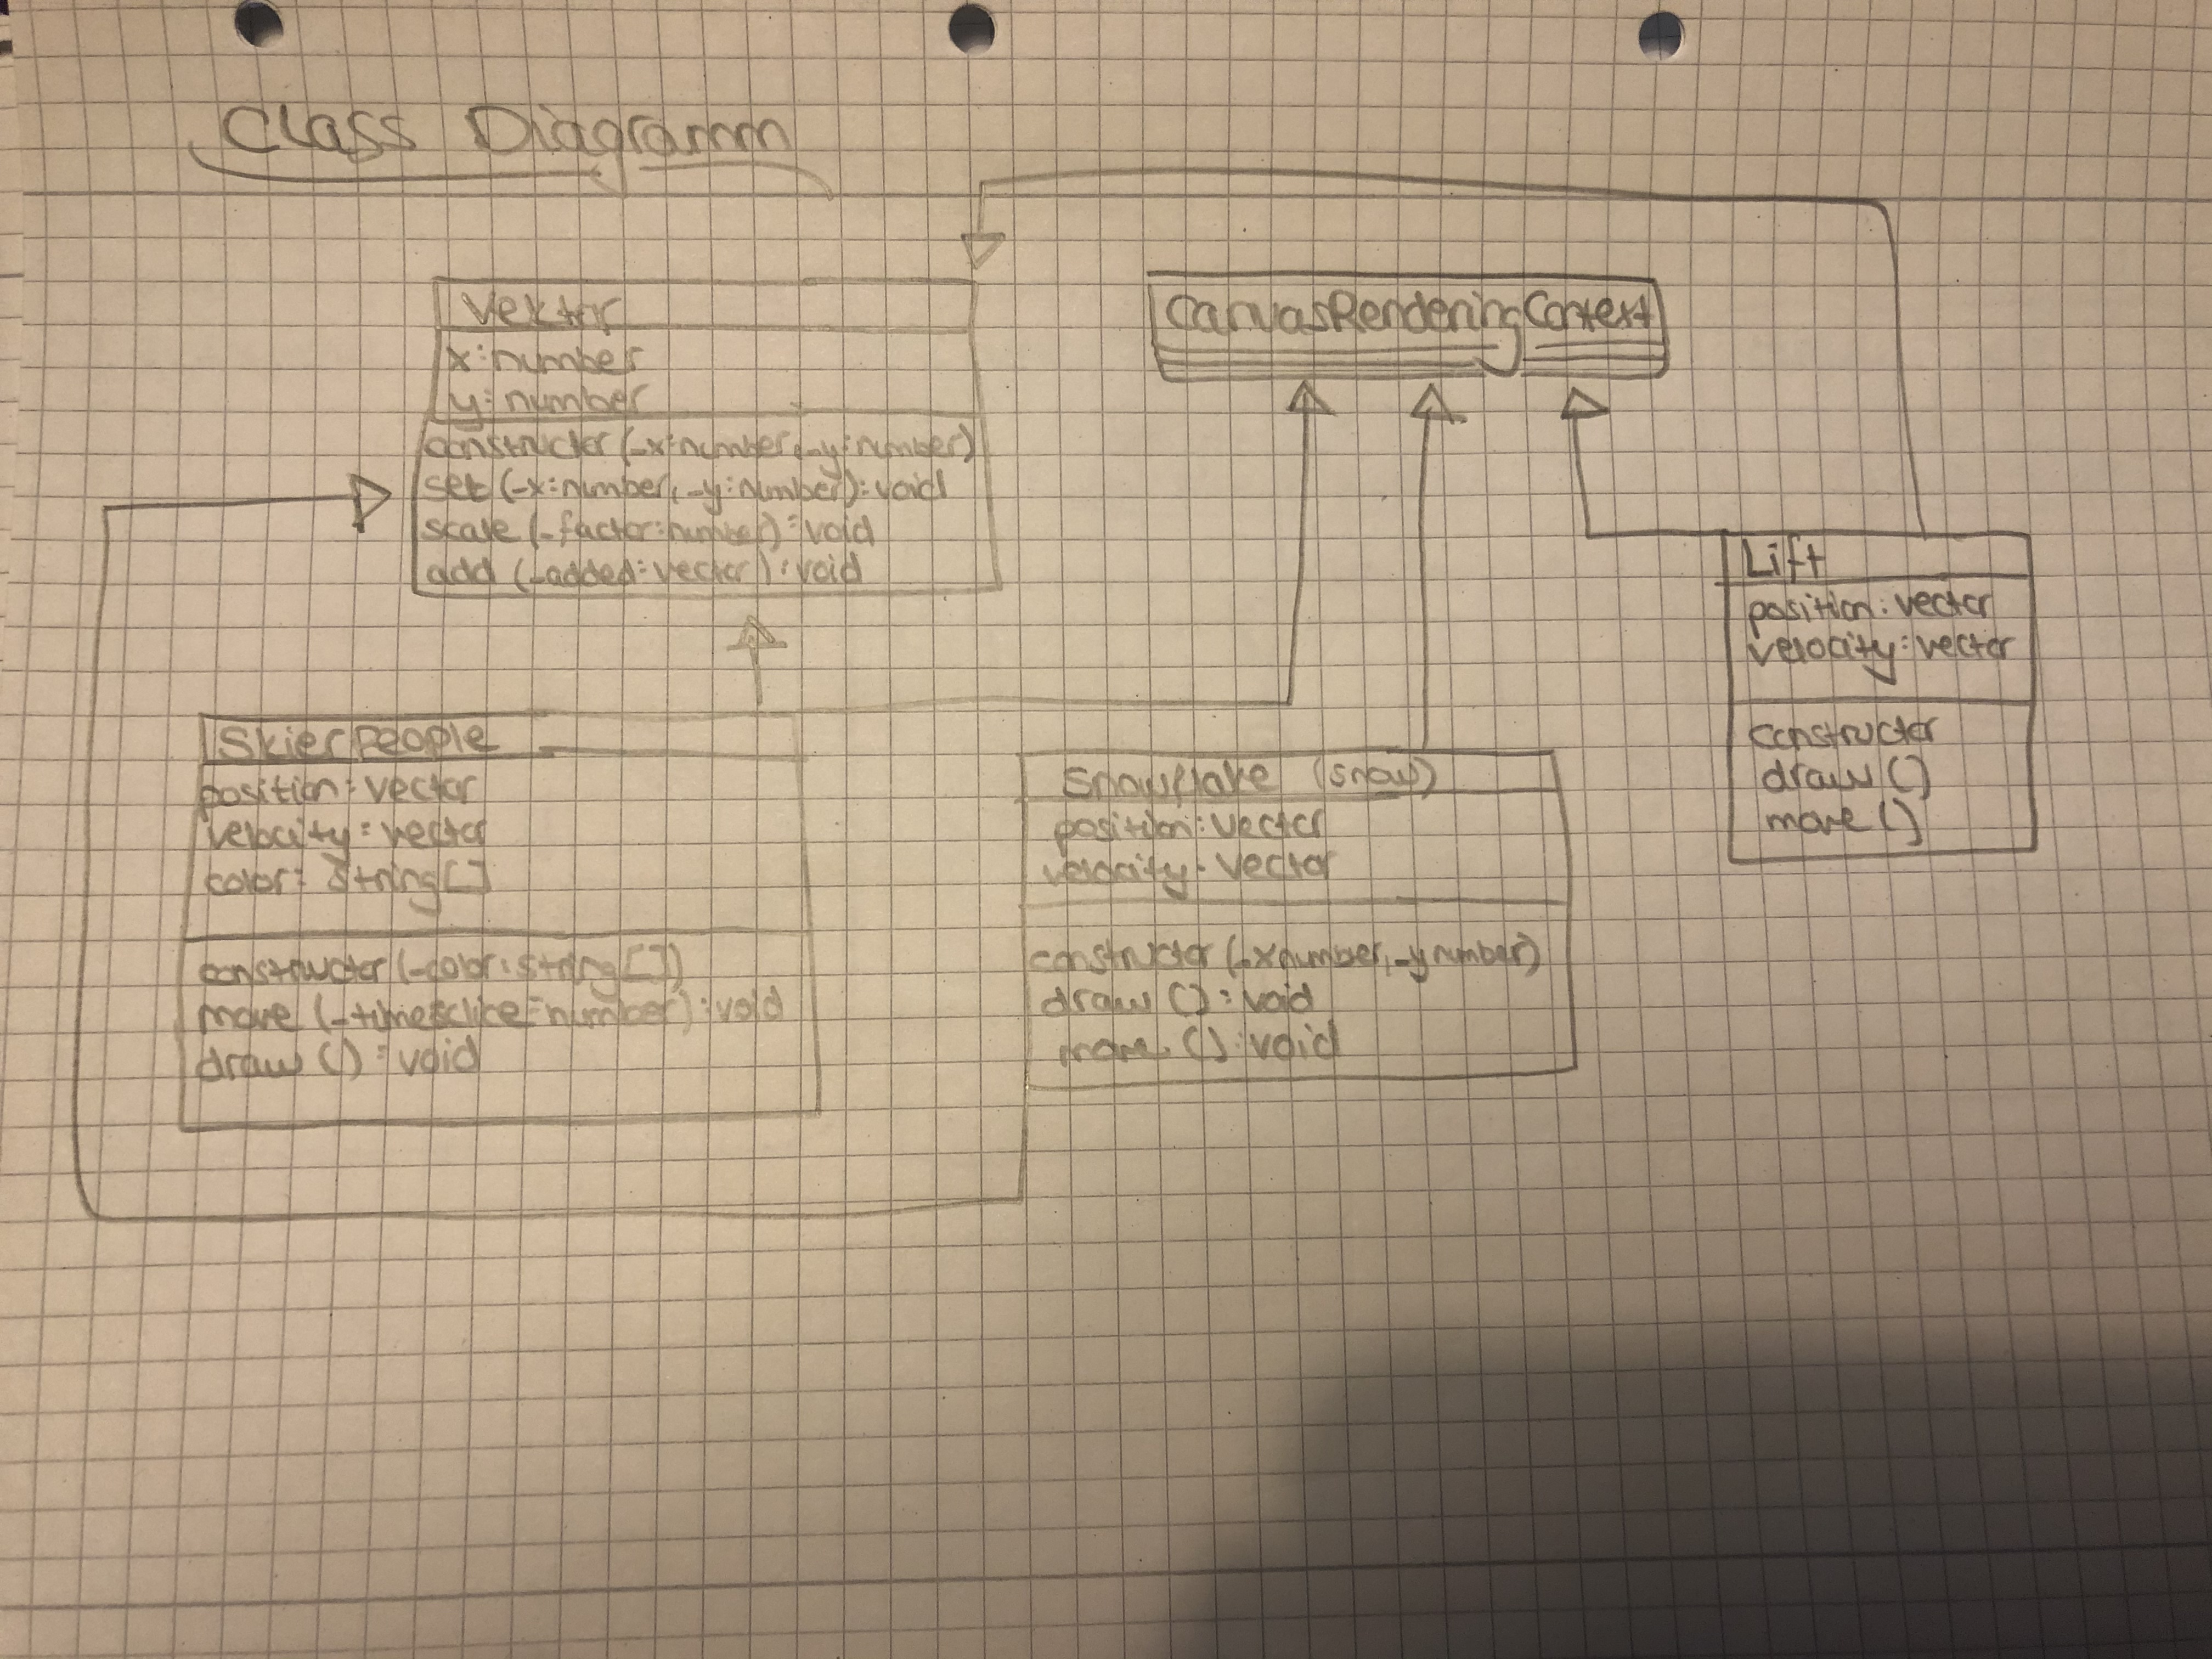 Class Diagramm
Vektor
x:number
y:number
constructer (_x:number,_y:number)
set (_x:number,_y:number):void
scale (_factor:number):void
add (_added:vector):void
CanvasRenderingContext
SkierPeople
position:vector
velocity:vector
color: string[]
constructer(_color:string[])
move (_timesclice:number):void
draw ():void
Snowflake (snow)
position:vector
velocity:vector
constructor (_x number,_y number)
draw ():void
move ():void
Lift
position:vector
velocity:vector
Constructor
draw ()
move ()